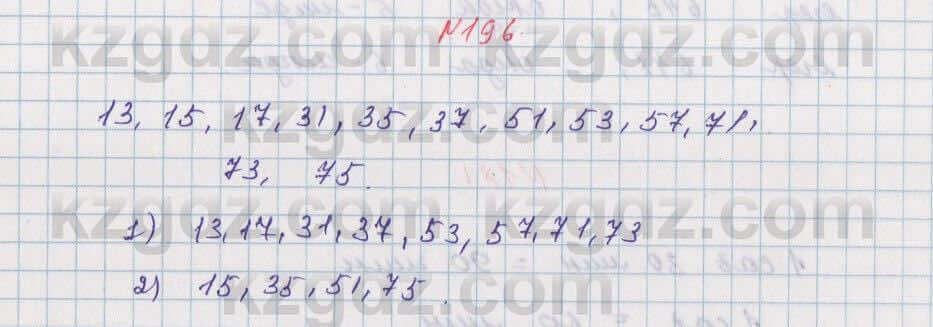 N196.
13, 15, 17, 31, 35, 37, 51, 53, 57, 71,
73, 75.
1) 13, 17, 31, 37, 53, 57, 71, 73
2) 15, 35, 51, 75.
kzgdz.com kzgdz.com
kzgdz.com kzgdz.com
kzgdz.com kzgdz.com